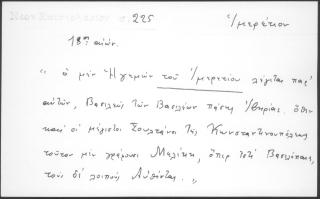 σ. 225
Ἰμερέτιον
18ου αἰών.
" ὁ μὲν Ἡγεμὼν τοῦ Ἰμερετίου λέγεται παρ'
αὐτῶν, Βασιλεὺς τῶν Βασιλέων πάσης Ἰβηρίας. ὅθεν
καὶ οἱ μέγιστοι Σουλτάνοι τῆς Κωνσταντινουπόλεως
τοῦτον μὲν γράφουσι Μελίκη, ὅπερ ἐστὶ Βασιλεύς,
τοὺς δὲ λοιποὺς Αὐθέντας. "